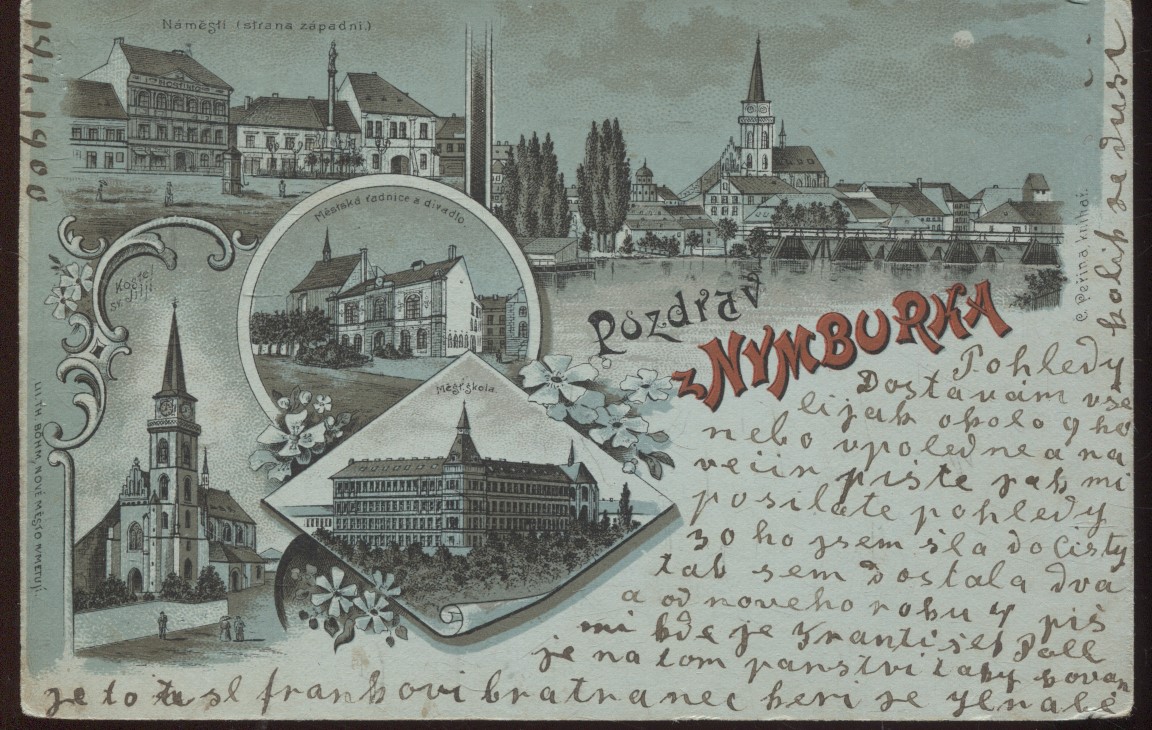 Náměstí (strana západní.)
14.1.1900
Městská radnice a divadlo.
Kostel
sv. Jiljí
Měšť. škola.
LITH. BÖHM, NOVÉ MĚSTO N/METUJÍ.
C. Peřina knihař.
Pozdrav
z NYMBURKA
Pohledy
Dostavam vse
lijak okolo 9 ho
nebo vpoledne a na
pište jak mi
posilate pohledy
30 ho jsem šla do Cisty
tak sem dostala dva
a od noveho roku 4 piš
mi kde je Frantisek
je na tom panstvi taky kovar
je to sl frankovi bratranec keri je
kolik ve dvest